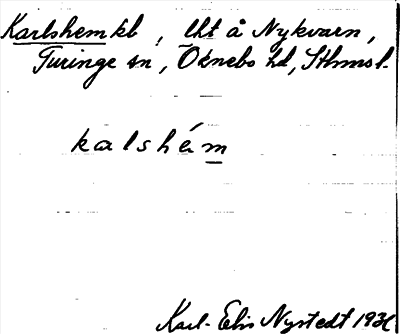 Karlshem kb, lht å Nykvarn,
Turinge sn, Öknebo hd, Sthmsl.
kalshém
Karl-Elis Nystedt